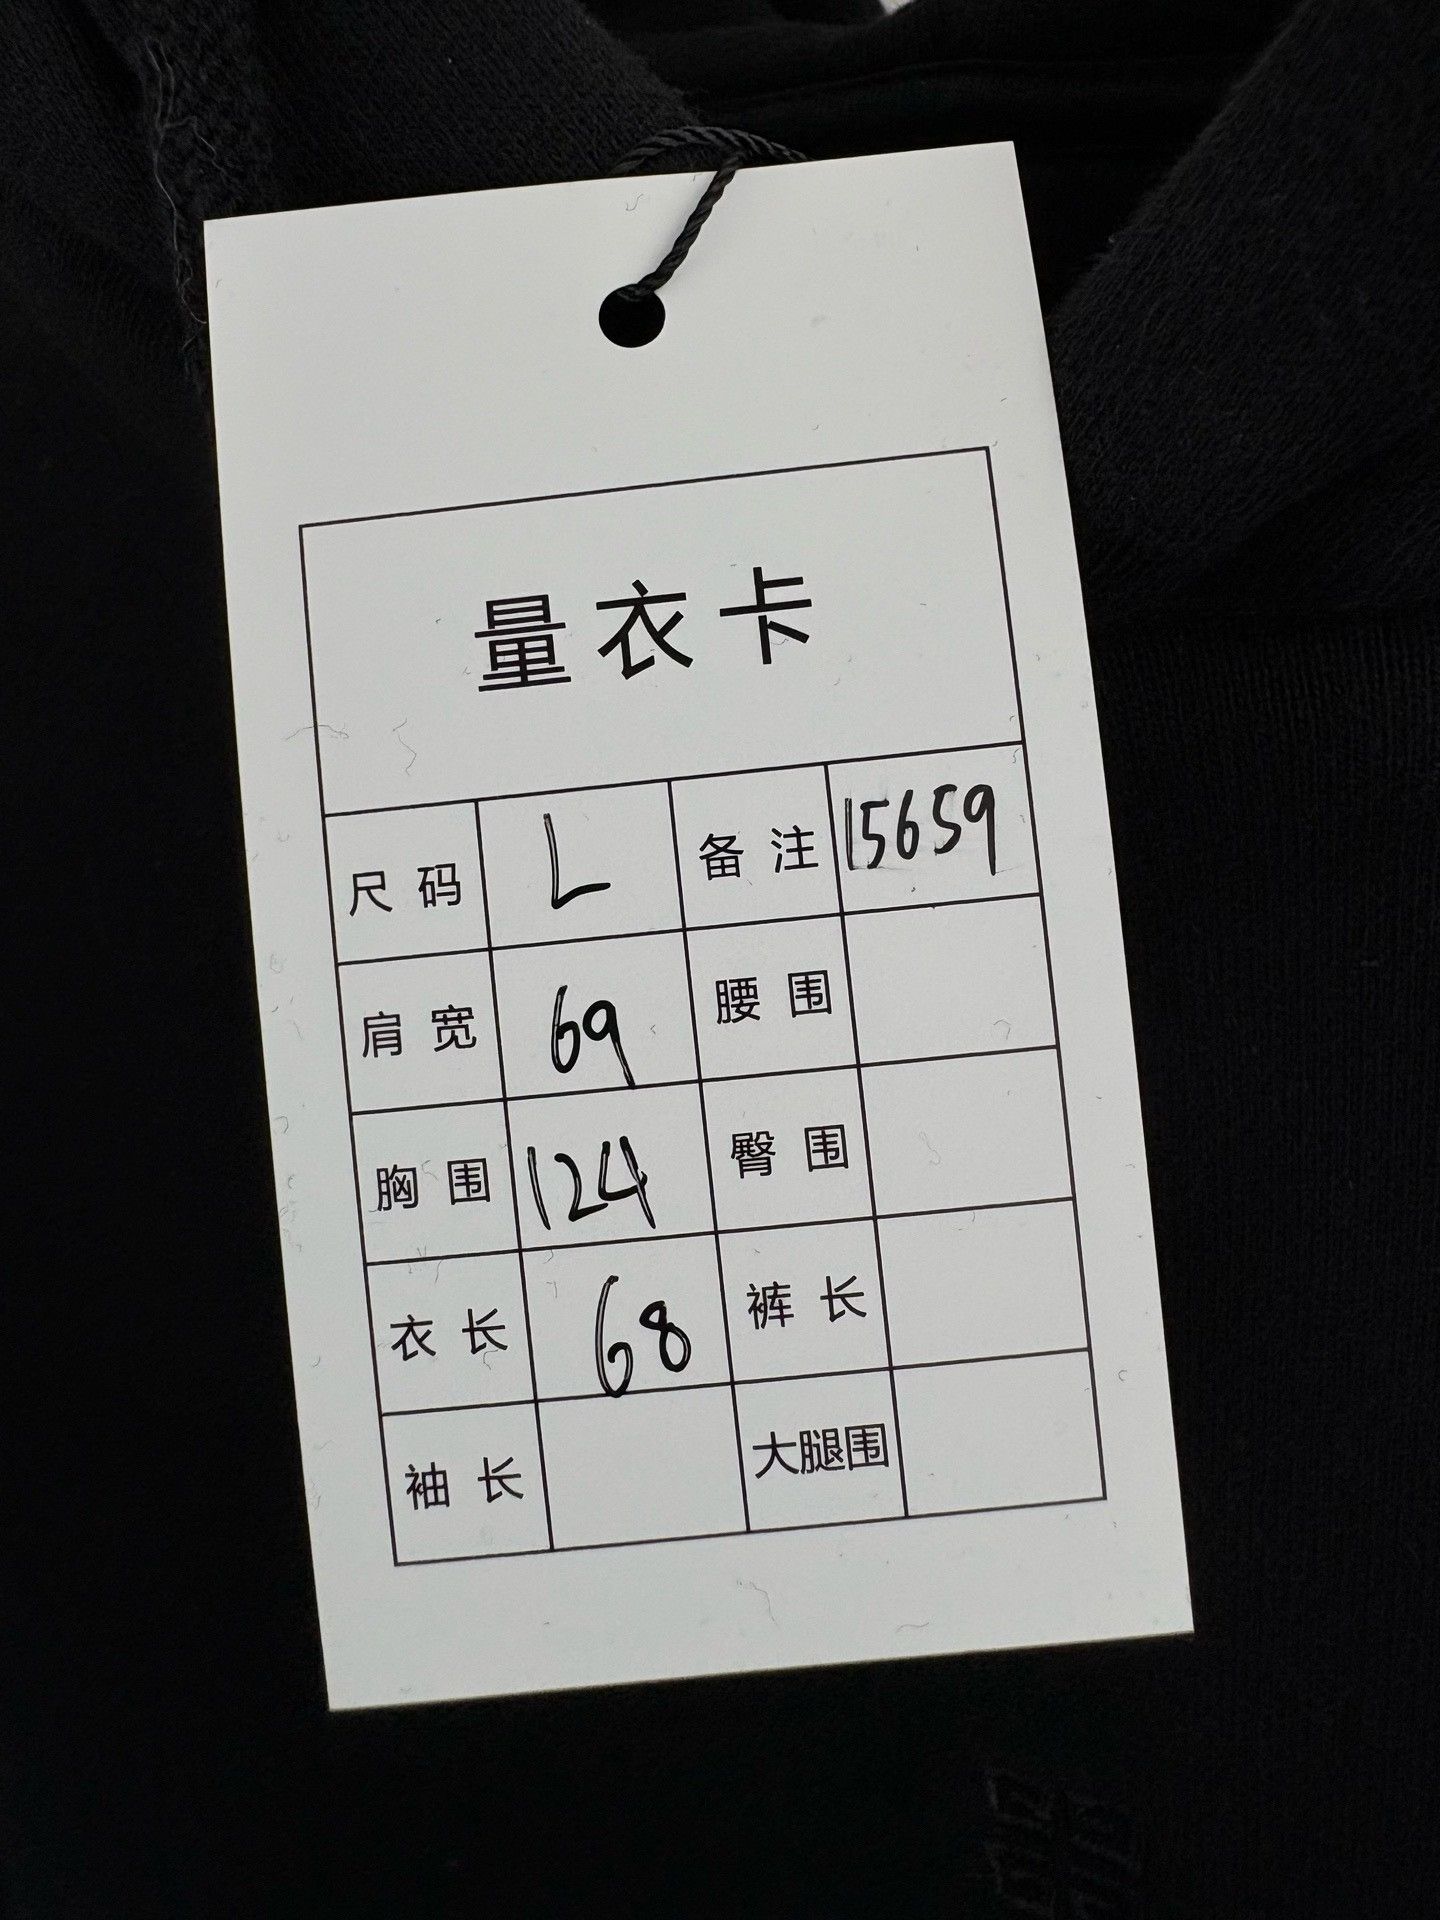 量衣卡
尺码 L 备注 15659
肩宽 69 腰围
胸围 124 臀围
衣长 68 裤长
袖长 大腿围